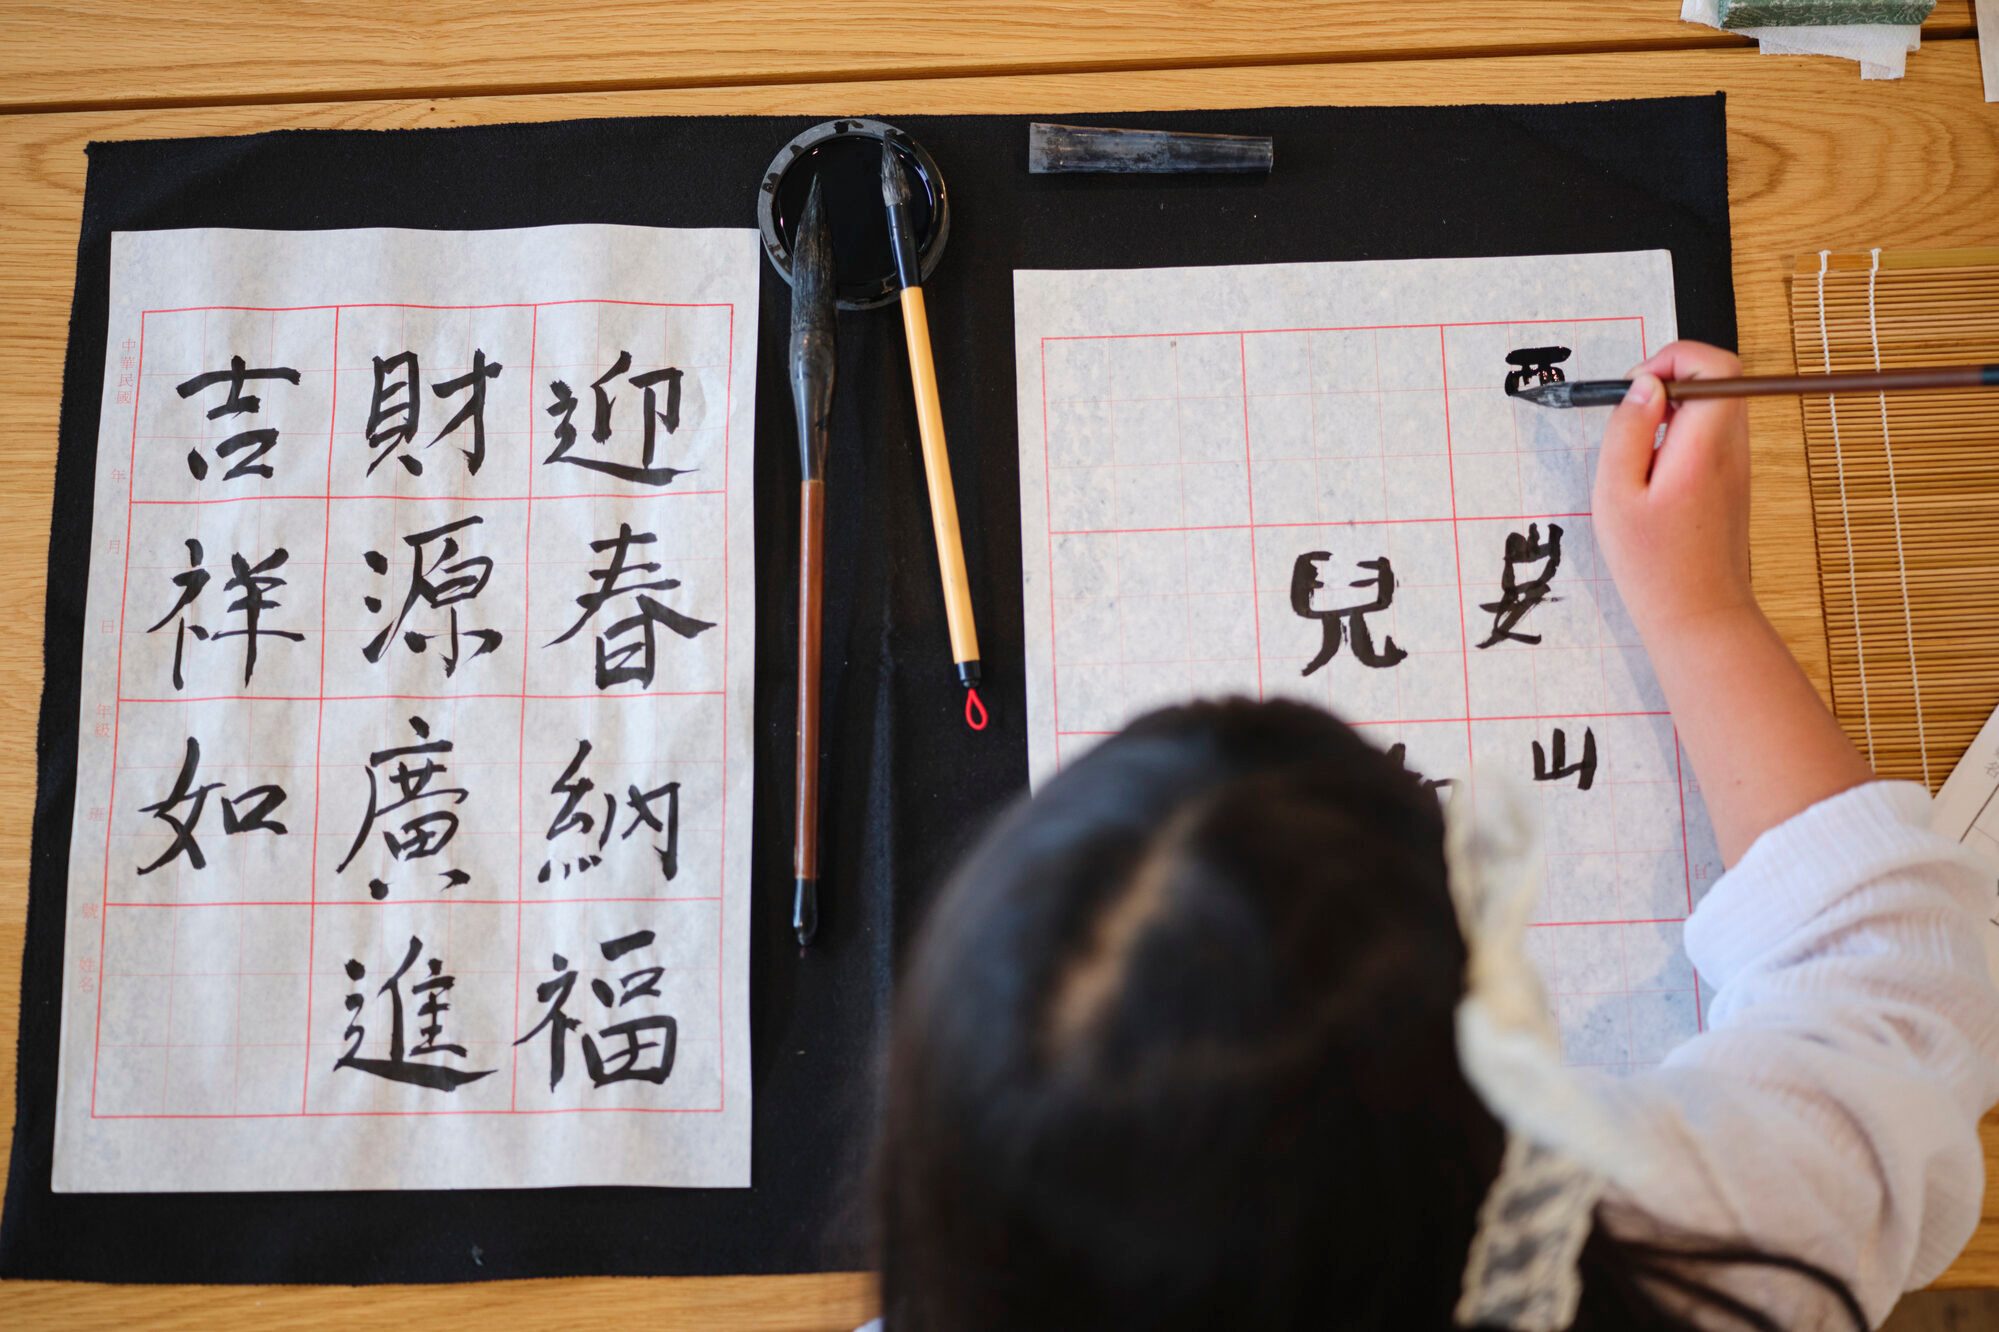 迎春納福
財源廣進
吉祥如
中華民國 年 月 日 年級 班 號 姓名
山
兒